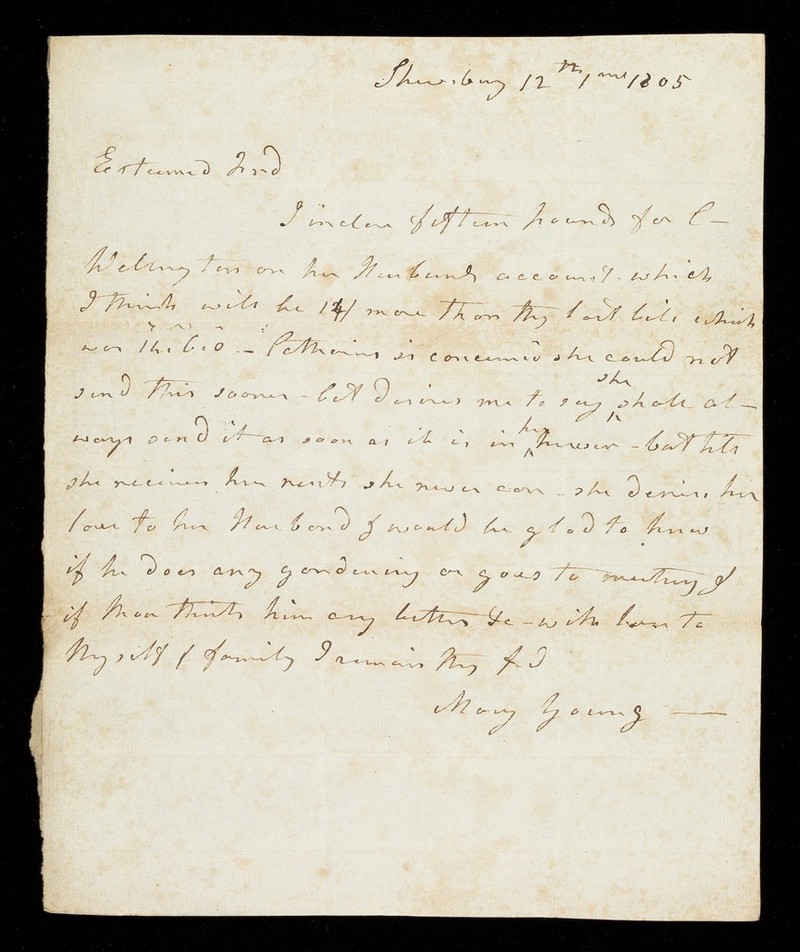 Shrewsbury 12th 1mo 1805
Esteemed Frnd
I inclose fifteen pounds for C-
Wellington on her Husbands account which
I think will be 14/ more than thy last bill which
was 14:6:0 - Catharine is concerned she could not
send this sooner - but desires me to say she shall al-
ways send it as soon as it is in her power - but till
she receives her rents she never can - she desires her
love to her Husband & would be glad to know
if he does any gardening or goes to meeting &
if thou thinks him any better &c - with love to
thyself & family I remain thy frd
Mary Young